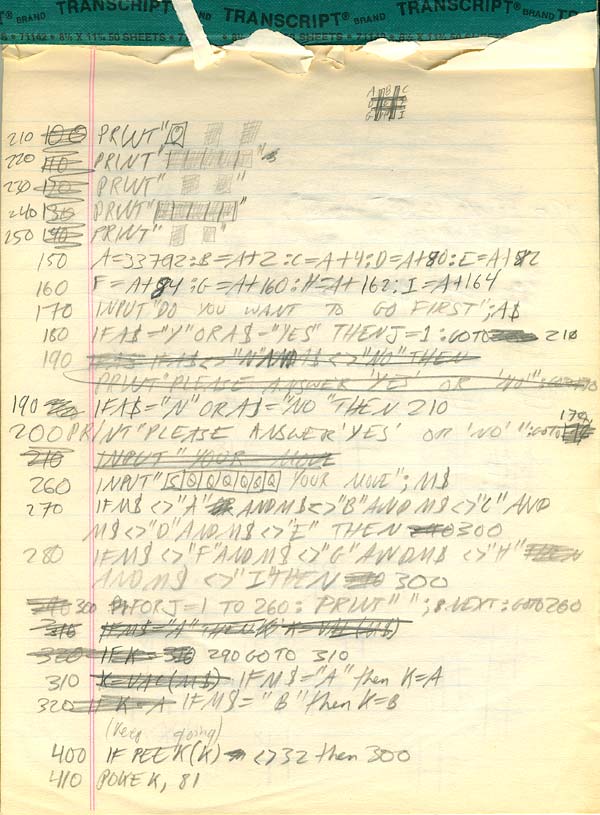 TRANSCRIPT® BRAND TRANSCRIPT® BRAND TRANSCRIPT® BRAND
71142 • 8½ X 11¾ 50 SHEETS
A B C
D E F
G H I
210 100 PRINT"Q
220 110 PRINT"
230 120 PRINT"
240 130 PRINT"
250 140 PRINT"
150 A=33792:B=A+2:C=A+4:D=A+80:E=A+82
160 F=A+84:G=A+160:H=A+162:I=A+164
170 INPUT"DO YOU WANT TO GO FIRST";A$
180 IFA$="Y"ORA$="YES" THENJ=1:GOTO 210
190 IFA$<>"N"ANDA$<>"NO"THEN
PRINT"PLEASE ANSWER 'YES' OR 'NO'":GOTO
190 IFA$="N"ORA$="NO"THEN 210
200 PRINT"PLEASE ANSWER'YES' OR 'NO'":GOTO 170
210 INPUT "YOUR MOVE
260 INPUT"SQQQQSQ YOUR MOVE";M$
270 IFM$<>"A" ANDM$<>"B"ANDM$<>"C"AND
M$<>"D"ANDM$<>"E" THEN 300
280 IFM$<>"F"ANDM$<>"G"ANDM$<>"H" THEN
ANDM$<>"I"THEN 300
300 FORJ=1 TO 260: PRINT" "; :NEXT:GOTO260
310 IFM$="A" THEN K=VAL(M$)
320 IFK= 290 GOTO 310
310 K=VAL(M$) IFM$="A" then K=A
320 IF K=A IFM$="B" then K=B
(Keep going)
400 IF PEEK(K) <>32 then 300
410 POKE K, 81